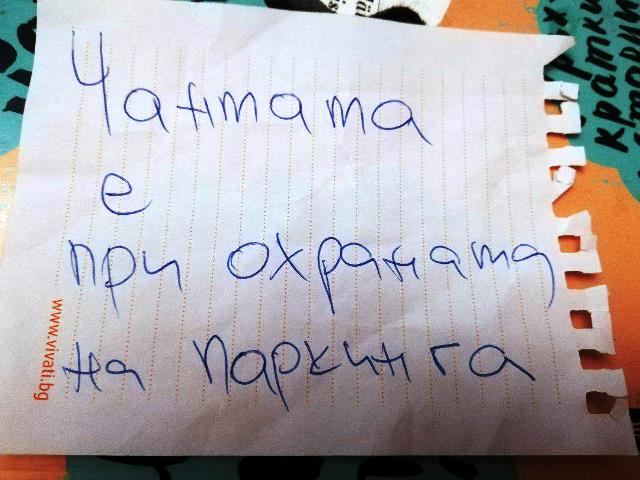 Чантата
е
при охраната
на паркинга
www.vivati.bg
кратки